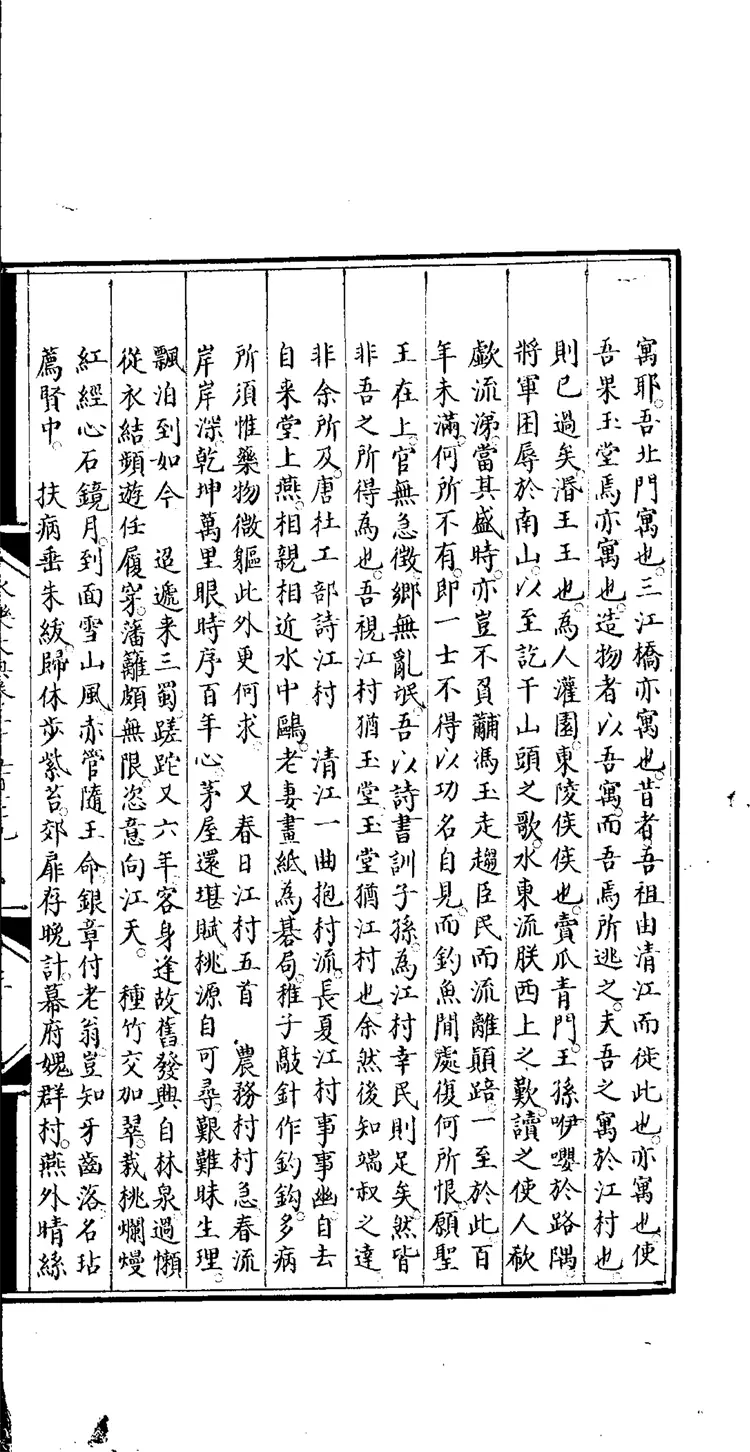 寓耶。吾北門寓也。三江橋亦寓也。昔者吾祖由清江而徙此也。亦寓也。使
吾果玉堂焉。亦寓也。造物者以吾寓。而吾焉所逃之。夫吾之寓於江村也。
則已過矣。湣王王也。為人灌園。東陵侯侯也。賣瓜青門。王孫咿嚶於路隅。
將軍困辱於南山。以至訖干山頭之歌。水東流朕西上之歎。讀之使人欷
歔流涕。當其盛時。亦豈不負黼馮玉走趨臣民。而流離顛踣。一至於此。百
年未滿。何所不有。即一士不得以功名自見。而釣魚閒處。復何所恨。願聖
王在上。官無急徵。鄉無亂氓。吾以詩書訓子孫。為江村幸民則足矣。然皆
非吾之所得為也。吾視江村猶玉堂。玉堂猶江村也。余然後知端叔之達
非余所及。唐杜工部詩江村 清江一曲抱村流。長夏江村事事幽。自去
自来堂上燕。相親相近水中鷗。老妻畫紙為碁局。稚子敲針作釣鈎。多病
所須惟藥物。微軀此外更何求。 又春日江村五首 農務村村急。春流
岸岸深。乾坤萬里眼。時序百年心。茅屋還堪賦。桃源自可尋。艱難昧生理。
飄泊到如今 迢遞来三蜀。蹉跎又六年。客身逢故舊。發興自林泉。過懶
從衣結。頻遊任履穿。藩籬頗無限。恣意向江天。 種竹交加翠。栽桃爛熳
紅。經心石鏡月。到面雪山風。赤管隨王命。銀章付老翁。豈知牙齒落。名玷
薦賢中。 扶病垂朱紱。歸休步紫苔。郊扉存晚計。幕府媿群村。燕外晴絲